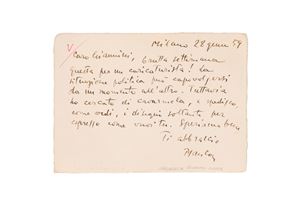 Milano 28 genn 59
Caro Giannini, brutta settimana
questa per un caricaturista! La
situazione politica può capovolgersi
da un momento all'altro. Tuttavia
ho cercato di cavarmela, e spedisco,
come vedi, i disegni soltanto per
espresso come vuoi tu. Speriamo bene
Ti abbraccio,